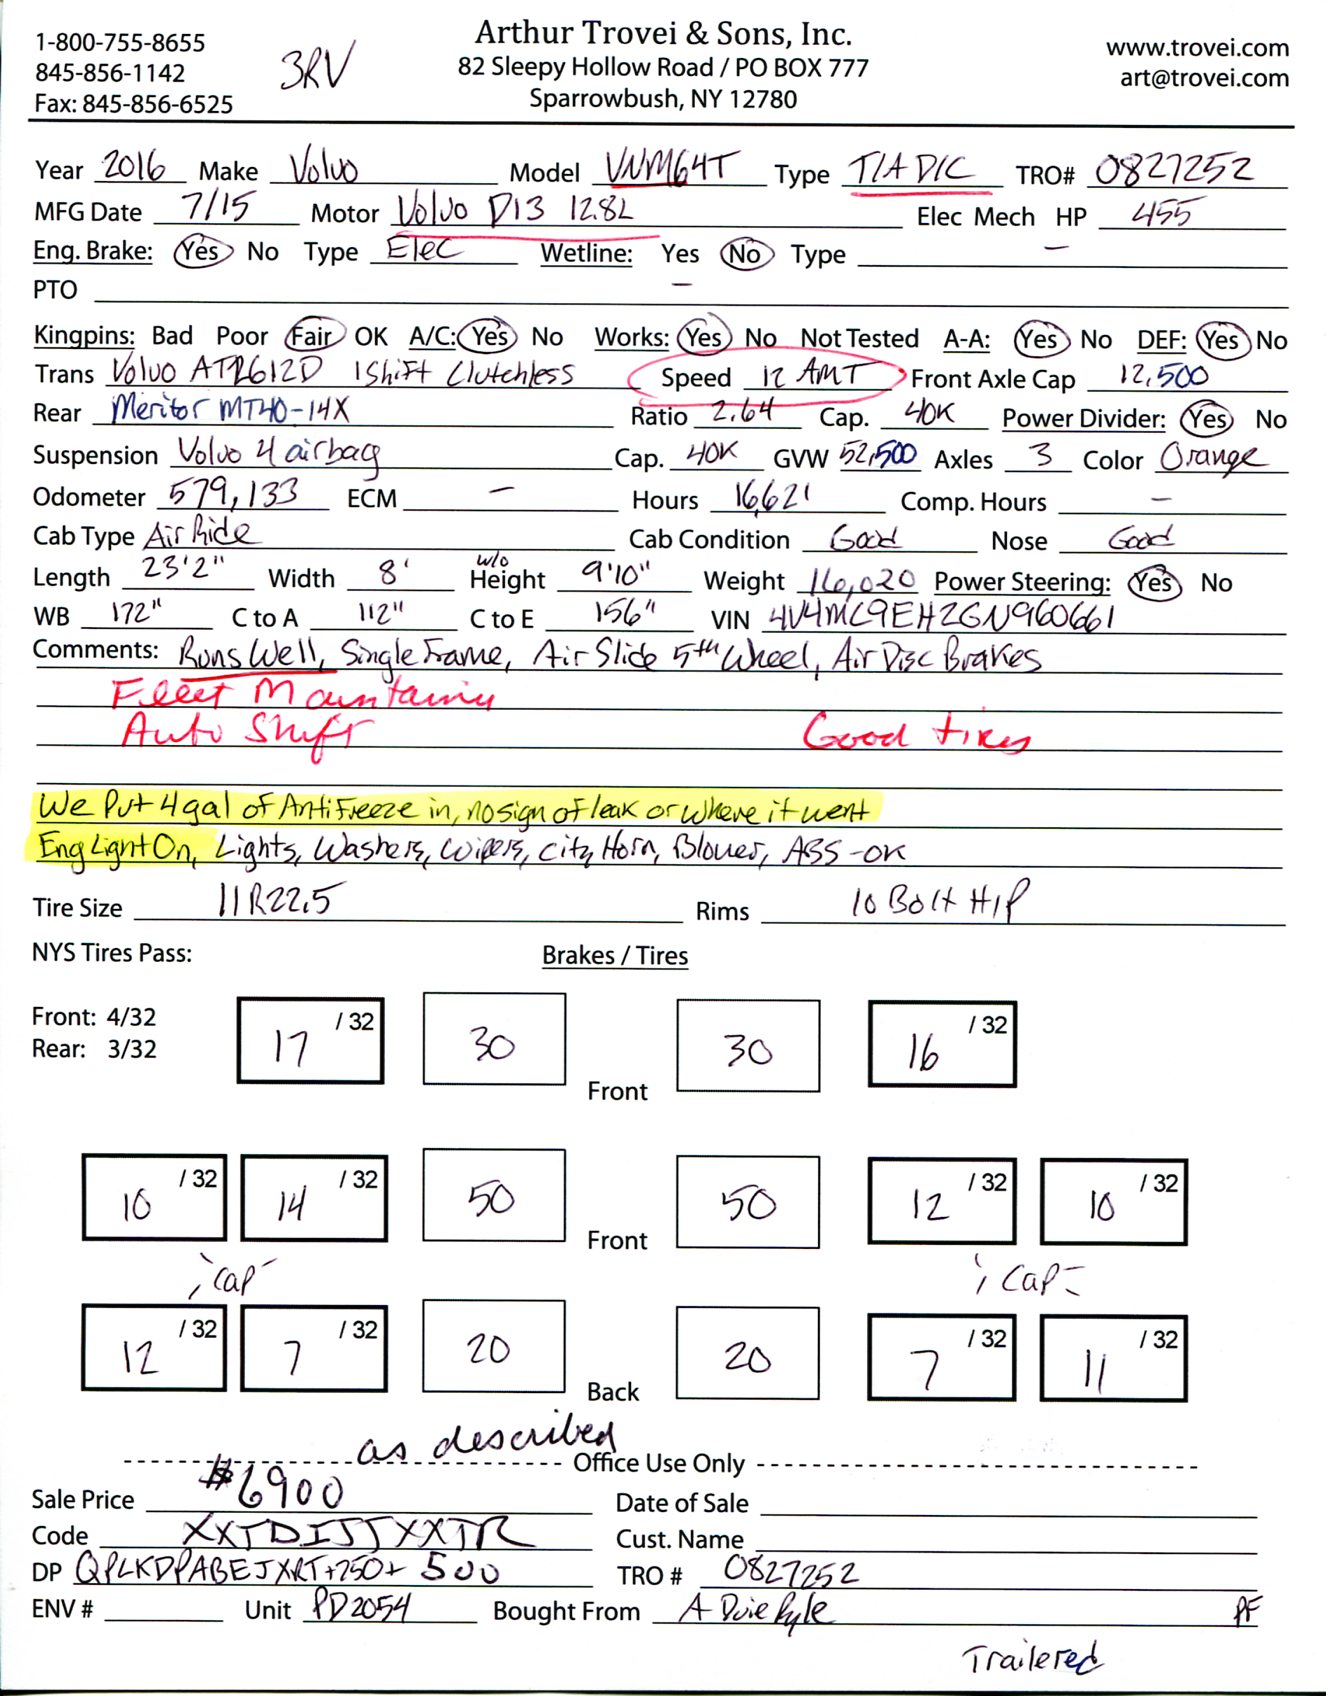 1-800-755-8655
845-856-1142
Fax: 845-856-6525
3RV
Arthur Trovei & Sons, Inc.
82 Sleepy Hollow Road / PO BOX 777
Sparrowbush, NY 12780
www.trovei.com
art@trovei.com
Year 2016 Make Volvo Model VNM64T Type T/A D/C TRO# 0827252
MFG Date 7/15 Motor Volvo D13 12.8L Elec Mech HP 455
Eng. Brake: Yes No Type Elec Wetline: Yes No Type —
PTO —
Kingpins: Bad Poor Fair OK A/C: Yes No Works: Yes No Not Tested A-A: Yes No DEF: Yes No
Trans Volvo AT2612D IShift Clutchless Speed 12 AMT Front Axle Cap 12,500
Rear Meritor MT40-14X Ratio 2.64 Cap. 40K Power Divider: Yes No
Suspension Volvo 4 airbag Cap. 40K GVW 52,500 Axles 3 Color Orange
Odometer 579,133 ECM — Hours 16,621 Comp. Hours —
Cab Type Air Ride Cab Condition Good Nose Good
Length 23'2" Width 8' w/o Height 9'10" Weight 16,020 Power Steering: Yes No
WB 172" C to A 112" C to E 156" VIN 4V4MC9EH2GN960661
Comments: Runs Well, Single Frame, Air Slide 5th Wheel, Air Disc Brakes
Fleet Mountainy
Auto Shift Good tires
We Put 4 gal of AntiFreeze in, no sign of leak or where it went
Eng Light On, Lights, Washers, Wipers, City Horn, Blower, ABS-OK
Tire Size 11R22.5 Rims 10 Bolt H/P
NYS Tires Pass: Brakes / Tires
Front: 4/32
Rear: 3/32
17 /32 30 Front 30 16 /32
10 /32 14 /32 50 Front 50 12 /32 10 /32
Cap Cap
12 /32 7 /32 20 Back 20 7 /32 11 /32
as described
Office Use Only
Sale Price $6900 Date of Sale
Code XXTDISJXXTR Cust. Name
DP QPLKDPABEJXRT+750+ 500 TRO # 0827252
ENV # Unit PD2054 Bought From A Duie Pyle PF
Trailered